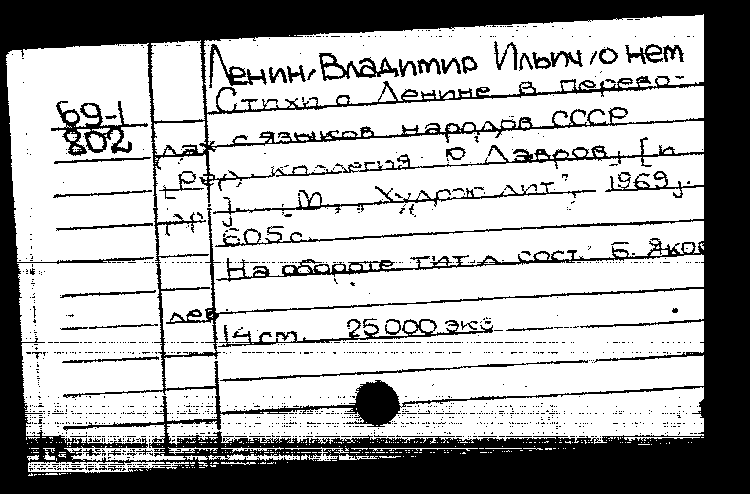 Ленин, Владимир Ильич, о нем
69-1
802
Стихи о Ленине в перево-
дах с языков народов СССР
[Ред. коллегия Ю Лавров, [и
др ]. М., „Худож лит“, 1969].
605 с.
На обороте тит л сост. Б. Яков
лев
14 см. 25000 экз